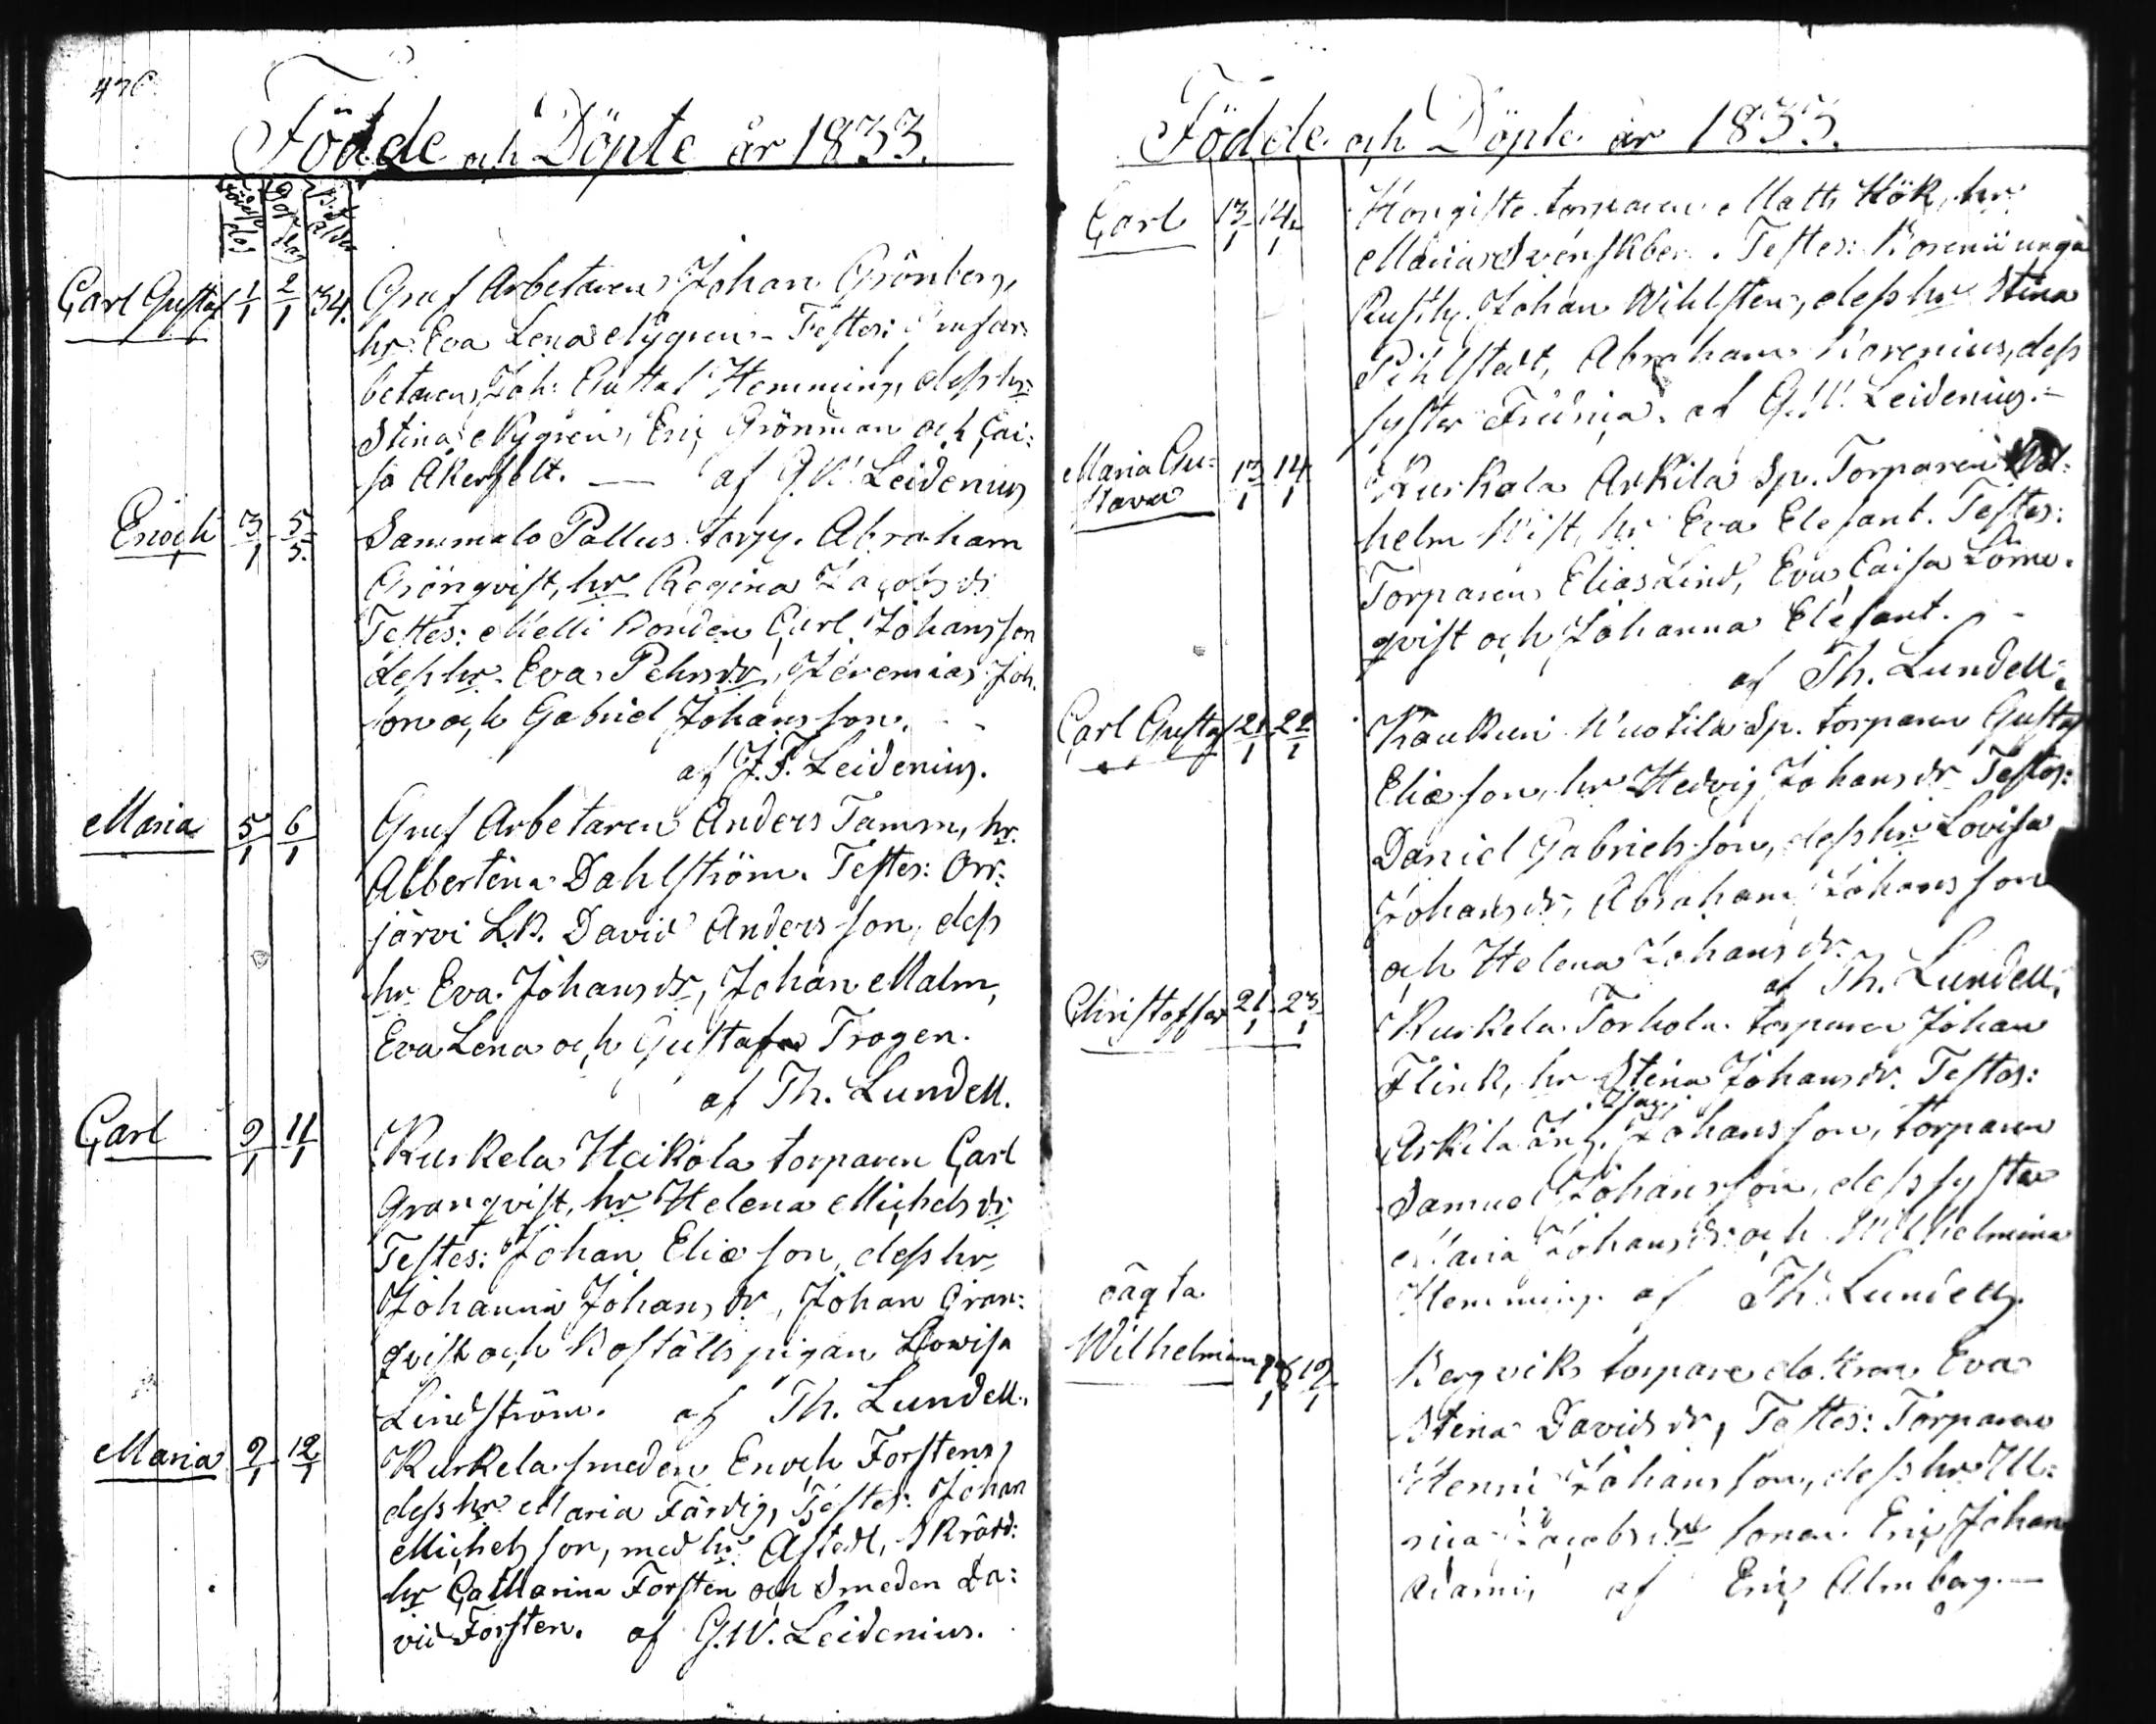 476
Födde och Döpte år 1833.
Födelse dag
Dop dag
Carl Gustaf 1/1 2/1 34. Gruf Arbetaren Johan Grönberg,
hr Eva Lena Nygren - Testes: Grufar:
betaren Joh: Gustaf Hemming, dess hr
Stina Nygren, Eric Grönman och Cai:
sa Åkerfelt. — af G.W. Leidenius
Enoch 3/1 5/5. Sammalo Pallus torp. Abraham
Grönqvist, hr Regina Jacobsdr
Testes: Melli Bonden Carl Johansson
dess hr Eva Pehrsdr, Jeremias Joh.
son och Gabriel Johansson.
af J.F. Leidenius.
Maria 5/1 6/1 Gruf Arbetaren Anders Tamm, hr.
Albertina Dahlström. Testes: Orr:
järvi L.B. David Andersson, dess
hr Eva Johansdr, Johan Malm,
Eva Lena och Gustafa Trogen.
af Th. Lundell.
Carl 9/1 11/1 Kurkela Heikola torparen Carl
Granqvist, hr Helena Michelsdr
Testes: Johan Eliæson, dess hr
Johanna Johansdr, Johan Gran:
qvist och Boställs pigan Lowisa
Lindström. af Th. Lundell.
Maria 9/1 12/1 Kurkela smeden Enoch Forstens,
dess hr Maria Färdig, Testes: Johan
Michelsson, med hr Astedt, Skrädd:
hr Catharina Forsten och Smeden Da:
vid Forsten. af G.W. Leidenius.
Födde och Döpte år 1833.
Carl 13/1 14/1 Kongiste torparen Matts Hök, hr
Maria Svenskber. Testes: Korenii unga
Rusth. Johan Wihlsten, dess hr Stina
Pihlstedt, Abraham Korenius, dess
syster af G.W. Leidenius.-
Maria Gu:
stava 13/1 14/1 Kurkela Arkila Sp. Torparen Wil:
helm Wist, hr Eva Elefant. Testes:
Torparen Elias Lind, Eva Caisa Lönn:
qvist och Johanna Elefant. -
af Th. Lundell.
Carl Gustaf 21/1 22/1 Koukari Wuotila Sp. torparen Gustaf
Eliæson, hr Hedvig Johansdr Testes:
Daniel Gabrielsson, dess hr Lovisa
Johansdr, Abraham Johansson
och Helena Johansdr.
af Th. Lundell.
Christoffer 21/1 23/1 Kurkela Torhola torparen Johan
Flink, hr Stina Johansdr. Testes:
Arkila Johansson, torparen
Samuel Johansson, dess syster
Maria Johansdr och Wilhelmina
Hemming. af Th. Lundell.
oägta
Wilhelmina 18/1 19/1 Bergviks torpare dottren Eva
Stina Davidsdr, Testes: Torparen
Henric Johansson, dess hr Ul:
rica Jacobsdr sonen Eric Johan
Adami, af Eric Almberg.—